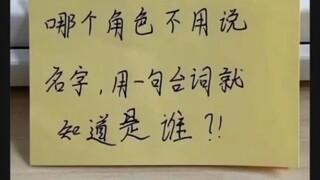 哪个角色不用说
名字，用一句台词就
知道是谁？！